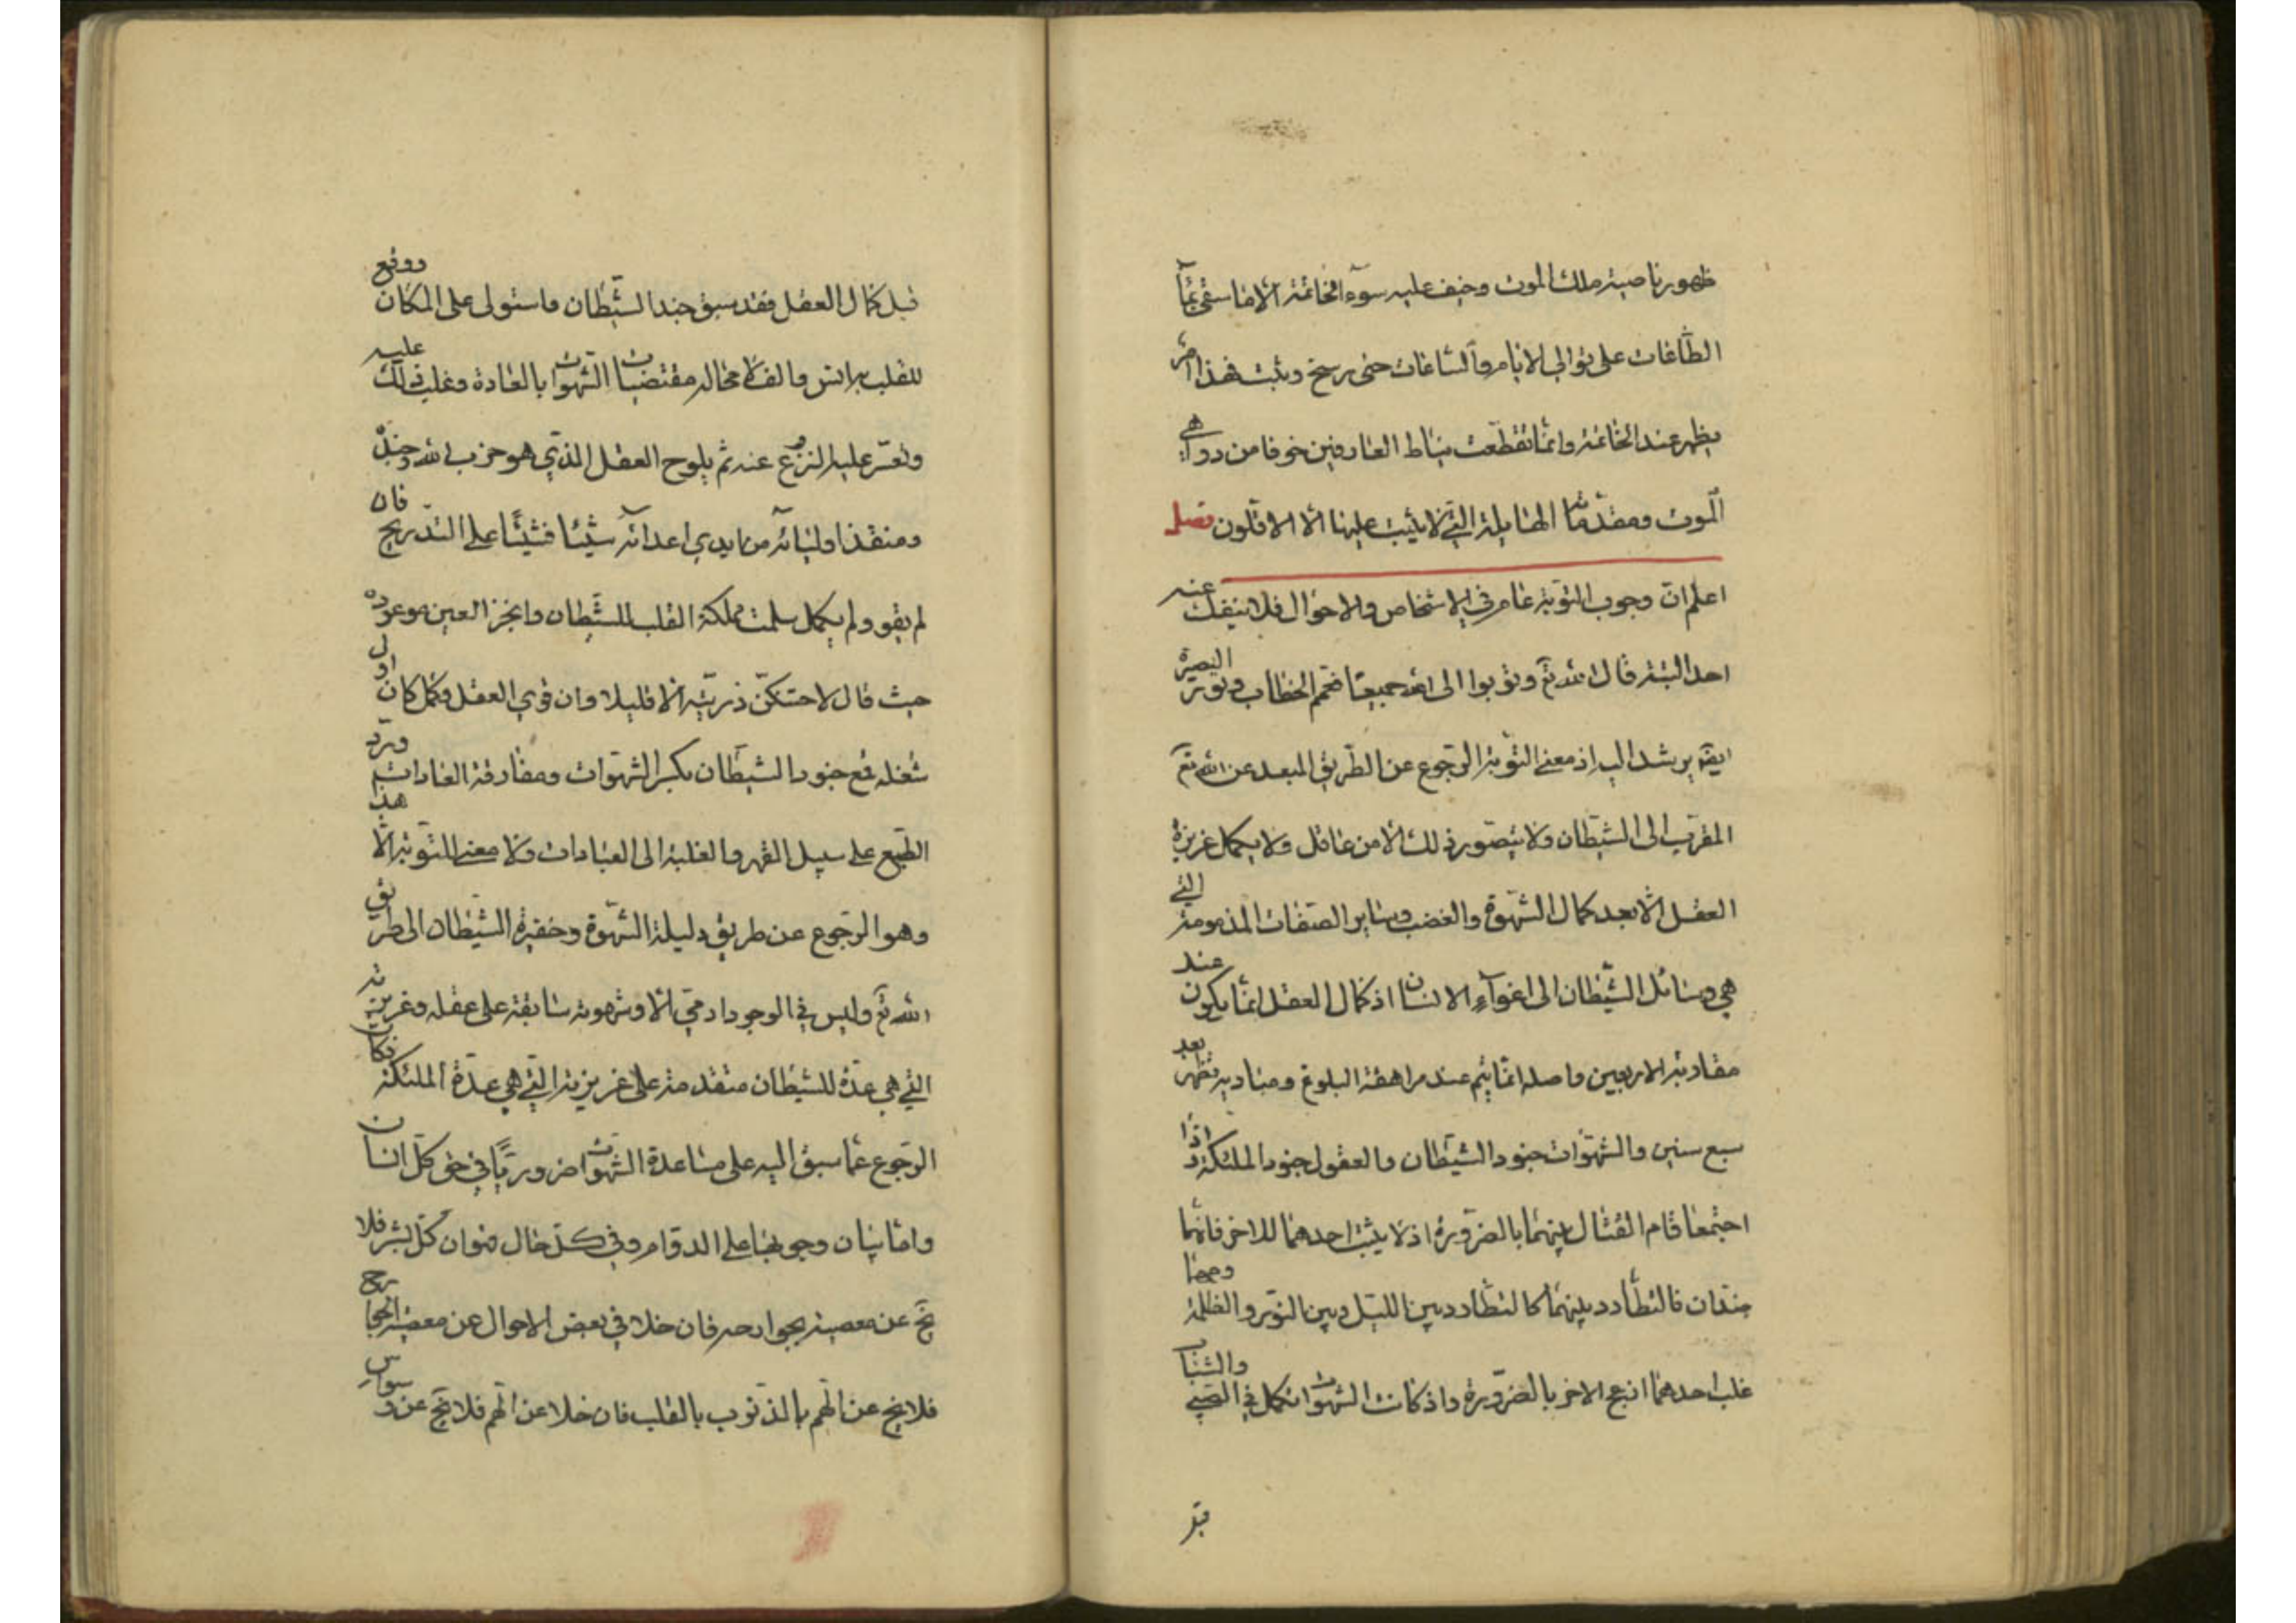 ظهور ناصية ملك الموت وخيف عليه سوء الخاتمة الا ما سقي بماء
الطاعات على توالي الايام والساعات حتى رسخ وثبت فهذا امر
يظهر عند الخاتمة وانما تقطعت نياط العارفين خوفا من دواهي
الموت ومقدماته الهايلة التي لا يثبت عليها الا الاقلون فصل
اعلم ان وجوب التوبة عام في الاشخاص والاحوال فلا ينفك عنه
احد البتة قال الله تع وتوبوا الى الله جميعا فعمم الخطاب ونور البصيرة
ايضا يرشد اليه اذ معنى التوبة الرجوع عن الطريق المبعد عن الله تع
المقرب الى الشيطان ولا يتصور ذلك الا من عاقل ولا يكمل غريزة
العقل الا بعد كمال الشهوة والغضب وساير الصفات المذمومة التي
هي وسائل الشيطان الى اغواء الانسان اذ كمال العقل انما يكون عند
مقاربة الاربعين واصله انما يتم عند مراهقة البلوغ ومباديه تظهر بعد
سبع سنين والشهوات جنود الشيطان والعقول جنود الملئكة فاذا
اجتمعا قام القتال بينهما بالضرورة اذ لا يثبت احدهما للاخر فانهما
ضدان فالتطارد بينهما كالتطارد بين الليل وبين النور والظلمة ومهما
غلب احدهما انزعج الاخر بالضرورة واذ كانت الشهوات تكمل في الصبي والشباب
قبل
قبل كمال العقل فقد سبق جند الشيطان واستولى على المكان ووقع
للقلب به انس والف لا محالة مقتضيات الشهوات بالعادة وغلب ذلك عليه
وتعسر عليه النزوع عنه ثم يلوح العقل الذي هو حزب الله وجنده
ومنقذ اوليائه من ايدي اعدائه شيئا فشيئا على التدريج فان
لم يقو ولم يكمل سلمت مملكة القلب للشيطان وانجز العين موعوده
حيث قال لاحتنكن ذريته الا قليلا وان قوي العقل وكمل كان اول
شغله قمع جنود الشيطان بكسر الشهوات ومفارقة العادات ورد
الطبع على سبيل القهر والغلبة الى العبادات ولا معنى للتوبة الا هذا
وهو الرجوع عن طريق دليله الشهوة وخفيره الشيطان الى طريق
الله تع وليس في الوجود ادمي الا وشهوته سابقة على عقله وغريزته
التي هي عدة للشيطان متقدمة على غريزته التي هي عدة الملئكة فكان
الرجوع عما سبق اليه على مساعدة الشهوات ضروريا في حق كل انسان
واما بيان وجوبها على الدوام وفي كل حال فهو ان كل بشر فلا
يخ عن معصية بجوارحه فان خلا في بعض الاحوال عن معصية الجوارح
فلا يخ عن الهم بالذنوب بالقلب فان خلا عن الهم فلا يخ عن وسواس